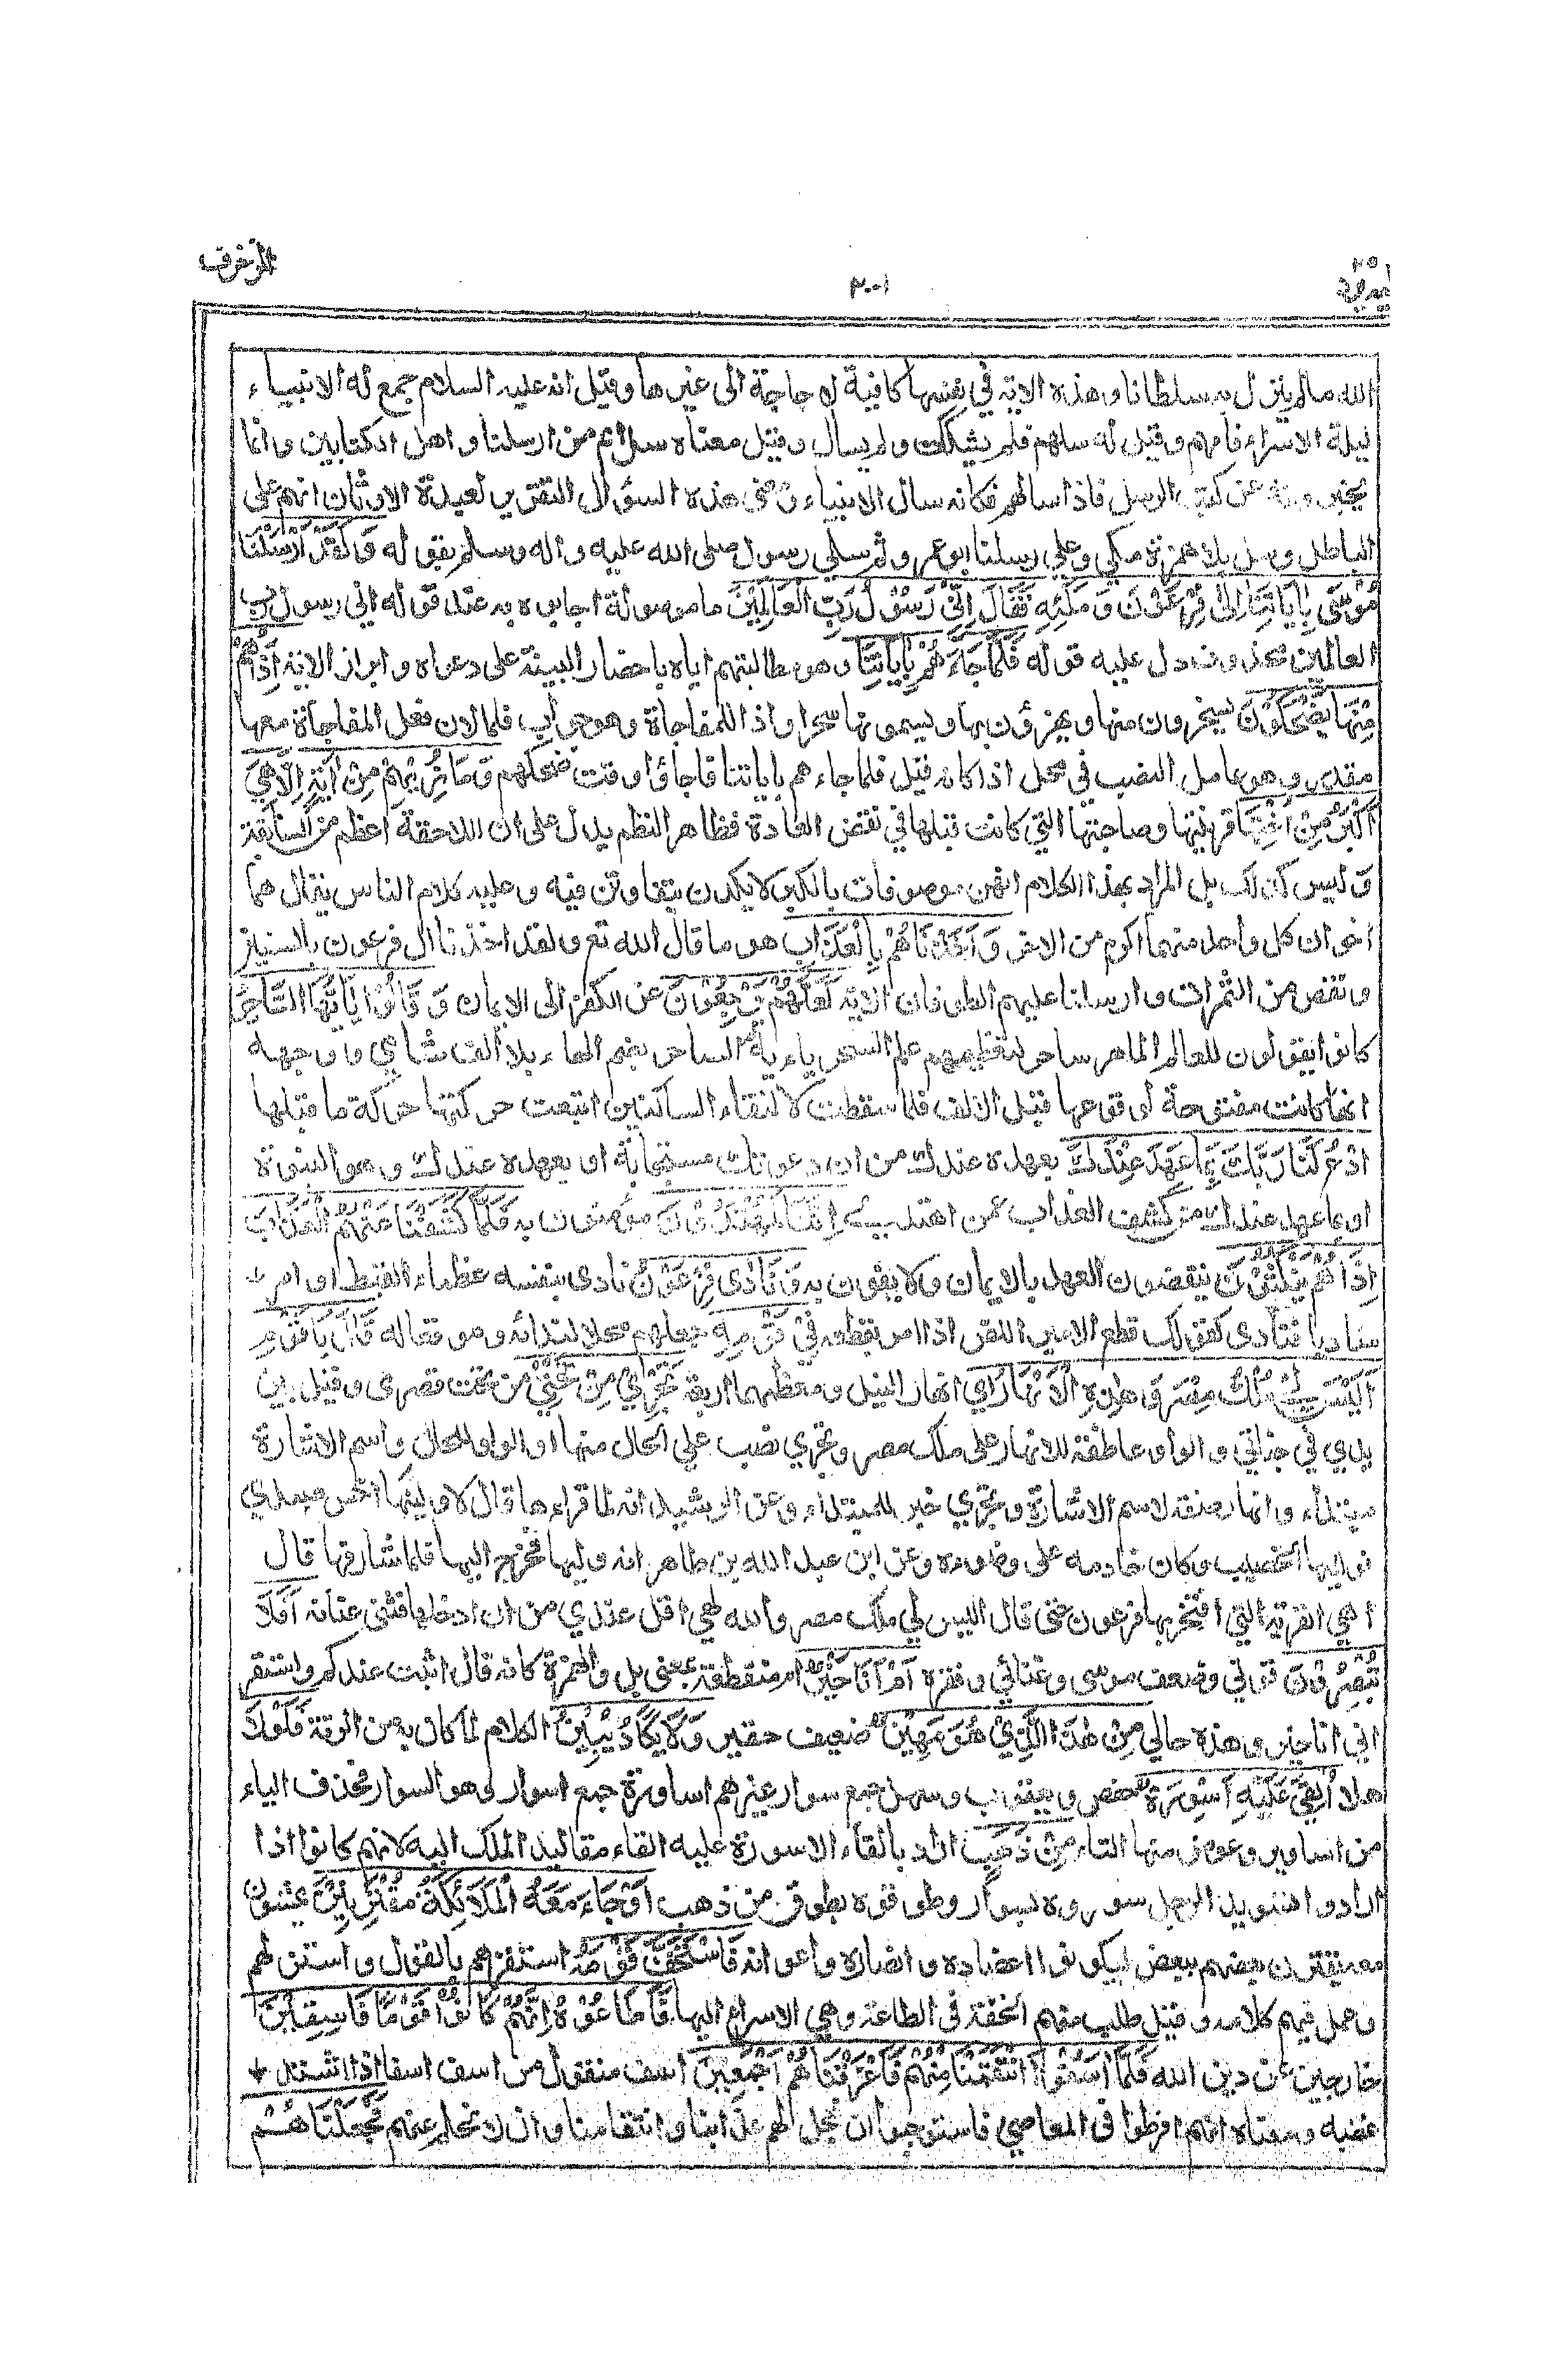 الزخرف
١٠٠٣
اليه يرد ٢٥
الله مالم ينزل به سلطانا وهذه الاية في نفسها كافية لا حاجة الى غيرها وقيل انه عليه السلام جمع له الانبياء
ليلة الاسراء فامهم وقيل له سلهم فلم يشكك ولم يسال وقيل معناه سل امم من ارسلنا واهل الكتابين وانما
يخبرونه عن كتب الرسل فاذا سالهم فكانه سال الانبياء ومعنى هذه السؤال التقرير لعبدة الاوثان انهم على
الباطل وسل بلا همزة مكي وعلي رسلنا ابو عمرو ثم سلي رسول صلى الله عليه واله وسلم بقوله وَلَقَدْ اَرْسَلْنَا
مُوْسٰى بِاٰيَاتِنَا اِلٰى فِرْعَوْنَ وَمَلَئِهٖ فَقَالَ اِنِّيْ رَسُوْلُ رَبِّ الْعَالَمِيْنَ ما موسولة اجابوه به عند قوله اني رسول رب
العالمين محذوف دل عليه قوله فَلَمَّا جَاءَهُمْ بِاٰيَاتِنَا وهو مطالبتهم اياه باحضار البينة على دعواه وابراز الاية اِذَا هُمْ
مِنْهَا يَضْحَكُوْنَ يسخرون منها ويهزؤن بها ويسمونها سحرا واذا للمفاجاة وهو جواب فلما لان فعل المفاجاة معها
مقدر وهو عامل النصب في محل اذا كانه قيل فلما جاءهم باياتنا فاجاؤا وقت ضحكهم وَمَا نُرِيْهِمْ مِنْ اٰيَةٍ اِلَّا هِيَ
اَكْبَرُ مِنْ اُخْتِهَا قرينتها وصاحبتها التي كانت قبلها في نقض العادة فظاهر النظم يدل على ان اللاحقة اعظم من السابقة
وليس كذلك بل المراد بهذا الكلام انهن موصوفات بالكبر لا يكدن يتفاوتن فيه وعليه كلام الناس يقال هما
اخوان كل واحد منهما اكرم من الاخر وَاَخَذْنَاهُمْ بِالْعَذَابِ هو ما قال الله تع ولقد اخذنا ال فرعون بالسنين
ونقص من الثمرات وارسلنا عليهم الطوفان الاية لَعَلَّهُمْ يَرْجِعُوْنَ عن الكفر الى الايمان وَقَالُوْا يَااَيُّهَا السَّاحِرُ
كانوا يقولون للعالم الماهر ساحر لتعظيمهم علم السحر ياءيه الساحر بضم الهاء بلا الف شامي ووجهه
انها كانت مفتوحة لوقوعها قبل الالف فلما سقطت لالتقاء الساكنين اتبعت حركتها حركة ما قبلها
ادْعُ لَنَا رَبَّكَ بِمَا عَهِدَ عِنْدَكَ بعهده عندك من ان دعوتك مستجابة او بعهده عندك وهو النبوة
او بما عهد عندك من كشف العذاب عمن اهتدى اِنَّنَا لَمُهْتَدُوْنَ مؤمنون به فَلَمَّا كَشَفْنَا عَنْهُمُ الْعَذَابَ
اِذَا هُمْ يَنْكُثُوْنَ ينقضون العهد بالايمان ولا يفون به وَنَادٰى فِرْعَوْنُ نادى بنفسه عظماء القبط او امر
مناديا فنادى كقولك قطع الامير اللص اذا امر بقطعه فِيْ قَوْمِهٖ جعلهم محلا لندائه وموقعا له قَالَ يَاقَوْمِ
اَلَيْسَ لِيْ مُلْكُ مِصْرَ وَهٰذِهِ الْاَنْهَارُ اي انهار النيل ومعظمها اربعة تَجْرِيْ مِنْ تَحْتِيْ من تحت قصري وقيل بين
يدي في جناني والواو عاطفة للانهار على ملك مصر وتجري نصب على الحال منها او الواو للحال واسم الاشارة
مبتداء وانهار صفة لاسم الاشارة وتجري خبر للمبتداء وعن الرشيد انه لما قراءها قال لاولينها اخس عبيدي
فولاها الخصيب وكان خادمه على وضوءه وعن ابن عبد الله بن طاهر انه وليها فخرج اليها فلما شارفها قال
اهي القرية التي افتخر بها فرعون حتى قال اليس لي ملك مصر والله لهي اقل عندي من ان ادخلها فثنى عنانه اَفَلَا
تُبْصِرُوْنَ قوتي وضعف موسى وغنائي وفقره اَمْ اَنَا خَيْرٌ ام منقطعة بمعنى بل والهمزة كانه قال اثبت عندكم واستقر
اني انا خير وهذه حالي مِنْ هٰذَا الَّذِيْ هُوَ مَهِيْنٌ ضعيف حقير وَلَا يَكَادُ يُبِيْنُ الكلام لما كان به من الرتة فَلَوْلَا
هلا اُلْقِيَ عَلَيْهِ اَسْوِرَةٌ حفص ويعقوب وسهل جمع سوار غيرهم اساورة جمع اسوار وهو السوار فحذف الياء
من اساوير وعوض منها التاء مِنْ ذَهَبٍ اراد بالقاء الاسورة عليه القاء مقاليد الملك اليه لانهم كانوا اذا
ارادوا تسويد الرجل سوروه بسوار وطوقوه بطوق من ذهب اَوْ جَاءَ مَعَهُ الْمَلَائِكَةُ مُقْتَرِنِيْنَ يمشون
معه يقترن بعضهم ببعض ليكونوا اعضاده وانصاره واعوانه فَاسْتَخَفَّ قَوْمَهٗ استفزهم بالقول واستزلهم
وعمل فيهم كلامه وقيل طلب منهم الخفة في الطاعة وهي الاسراع اليها فَاَطَاعُوْهُ اِنَّهُمْ كَانُوْا قَوْمًا فَاسِقِيْنَ
خارجين عن دين الله فَلَمَّا اٰسَفُوْنَا انْتَقَمْنَا مِنْهُمْ فَاَغْرَقْنَاهُمْ اَجْمَعِيْنَ اسف منقول من اسف اسفا اذا اشتد
غضبه ومعناه انهم افرطوا في المعاصي فاستوجبوا ان نعجل لهم عذابنا وانتقامنا وان لا نحلم عنهم فَجَعَلْنَاهُمْ